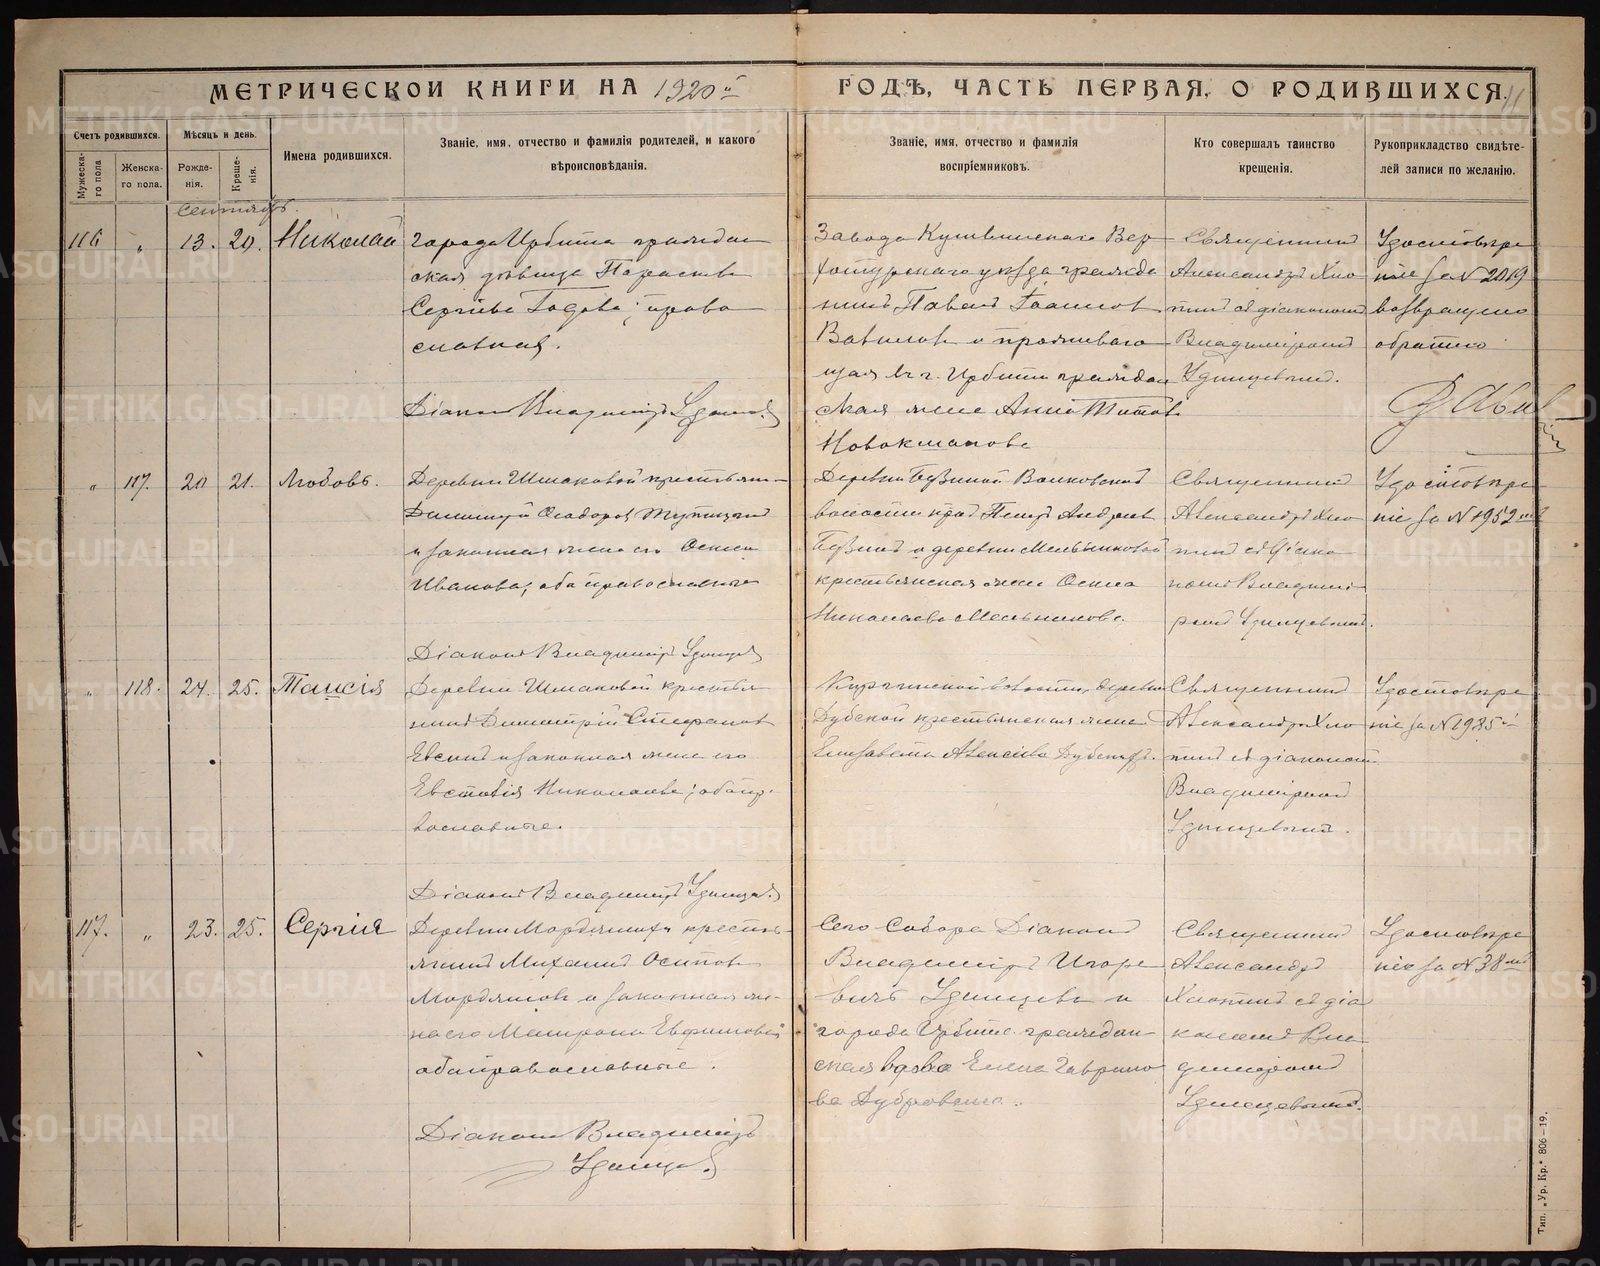 МЕТРИЧЕСКОЙ КНИГИ НА 1920й ГОДЪ, ЧАСТЬ ПЕРВАЯ, О РОДИВШИХСЯ. 11
Счетъ родившихся.
Мужеска-
го пола
Женска-
го пола.
Мѣсяцъ и день.
Рожде-
нія.
Креще-
нія.
Имена родившихся.
Званіе, имя, отчество и фамилія родителей, и какого
вѣроисповѣданія.
Званіе, имя, отчество и фамилія
воспріемниковъ.
Кто совершалъ таинство
крещенія.
Рукоприкладство свидѣте-
лей записи по желанію.
Сентябрь.
116 „ 13. 20. Николай
города Ирбита граждан
ская дѣвица Параскева
Сергѣева ; право
славная.
Діаконъ Владиміръ Удинцевъ
Завода Кушвинскаго Вер
хотурскаго уѣзда гражда
нинъ Павелъ Іоанновъ
Вавиловъ и проживаю
щая въ г. Ирбити граждан
ская жена Анна Титова
Священникъ
Александръ Хло
пинъ съ діакономъ
Владиміромъ
Удинцевымъ.
Удостовѣре
ніе за № 2019
возвращено
обратно
„ 117. 20 21. Любовь.
Деревни Шмаковой крестьян
Димитрій Ѳеодоровъ
и законная жена его Ксенія
Иванова; оба православные
Діаконъ Владиміръ Удинцевъ
Деревни Бузиной Волковской
волости кр. Петръ Андреевъ
Бузинъ и деревни Мельниковой
крестьянская жена Ксенія
Николаева Мельникова.
Священникъ
Александръ Хло
пинъ съ діако
номъ Владимі
ромъ Удинцевымъ.
Удостовѣре
ніе за № 1952
„ 118. 24. 25. Таисія
Деревни Шмаковой крестья
нинъ Димитрій Стефановъ
и законная жена его
Евстолія Николаева; оба пра
вославные.
Діаконъ Владиміръ Удинцевъ
волости, деревни
Дубской крестьянская жена
Елизавета Алексѣева Дубская.
Священникъ
Александръ Хло
пинъ съ діакономъ
Владиміромъ
Удинцевымъ.
Удостовѣре
ніе за № 1985
117. „ 23. 25. Сергія
Деревни Мордяшихи кресть
янинъ Михаилъ Осиповъ
Мордяшовъ и законная же
на его Матрона Евфимова
оба православные.
Діаконъ Владиміръ
Удинцевъ
Сего Собора Діаконъ
Владиміръ Игоре
вичъ Удинцевъ и
города Ирбита граждан
ская вдова Елена Гаврило
ва Дубровина.
Священникъ
Александръ
Хлопинъ съ діа
кономъ Вла
диміромъ
Удинцевымъ.
Удостовѣре
ніе за № 38
Тип. „Ур. Кр." 806—19.
METRIKI.GASO-URAL.RU